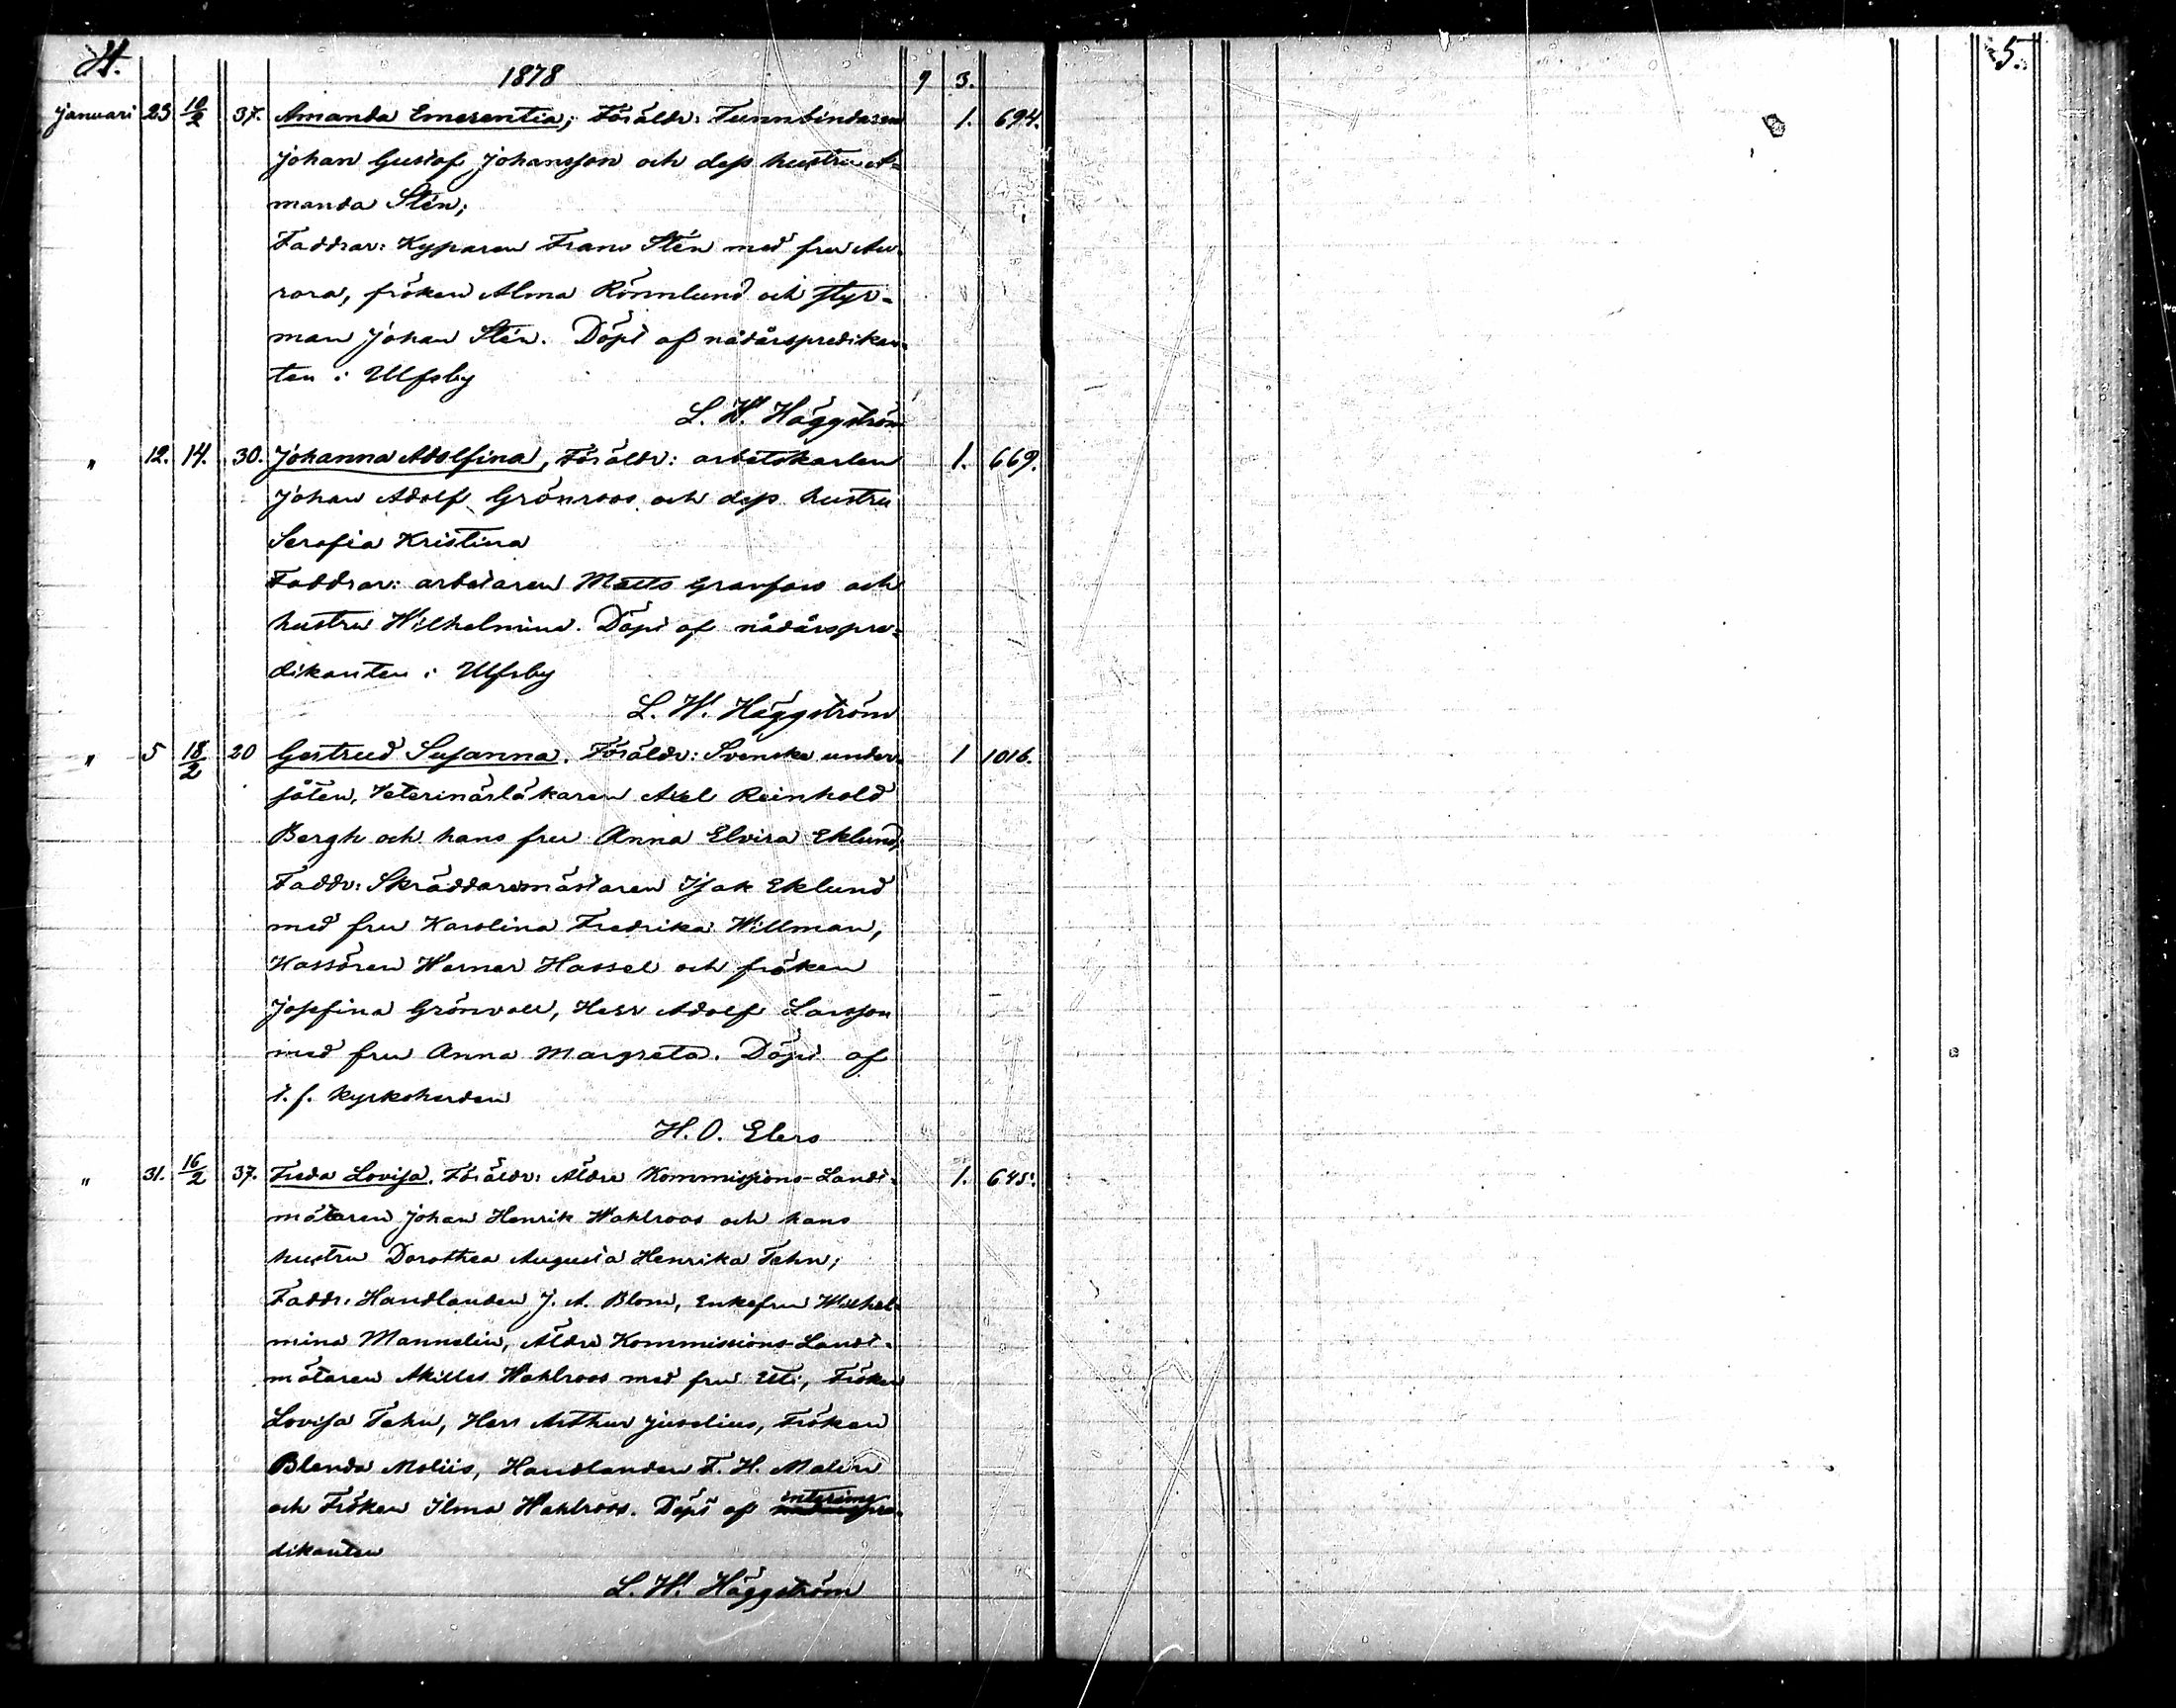 H. 5.
1878 9 3.
Januari 23 10/2 37. Amanda Emerentia; Föräldr: Tunnbindaren 1. 694.
Johan Gustof Johansson och dess hustru A-
manda Stén;
Faddrar: Kyparen Frans Stén med fru Au-
rora, fröken Alma Rönnlund och styr-
man Johan Stén. Döpt af nådårspredikan-
ten i Ulfsby
L. W. Häggström
" 12. 14. 30. Johanna Adolfina, Föräldr: arbetskarlen 1. 669.
Johan Adolf Grönroos och dess hustru
Serafia Kristina
Faddrar: arbetaren Matts Granfors och
hustru Wilhelmina. Döpt af nådårspre-
dikanten i Ulfsby
L. W. Häggström
" 5 18/2 20 Gertrud Susanna. Föräldr: Svenske under- 1 1016.
såten, Veterinärläkaren Axel Reinhold
Bergh och hans fru Anna Elvira Eklund;
Faddr: Skräddaremästaren Isak Eklund
med fru Karolina Fredrika Willman,
Kassören Werner Hassel och fröken
Josefina Grönvall, Herr Adolf Larsson
med fru Anna Margreta. Döpt af
t. f. Kyrkoherden
H. O. Elers
" 31. 16/2 37. Freda Lovisa. Föräldr: Äldre Kommissions-Landt- 1. 645.
mätaren Johan Henrik Wahlroos och hans
hustru Dorothea Augusta Henrika Tehn;
Faddr: Handlanden J. A. Blom, Enkefru Wilhel-
mina Mannelin, Äldre Kommissions-Landt-
mätaren Akilles Wahlroos med fru Etti, Fröken
Lovisa Tehn, Herr Arthur Juselius, Fröken
Blenda Moliis, Handlanden F. H. Malin
och Fröken Ilma Wahlroos. Döpt af interimspre-
dikanten
L. W. Häggström